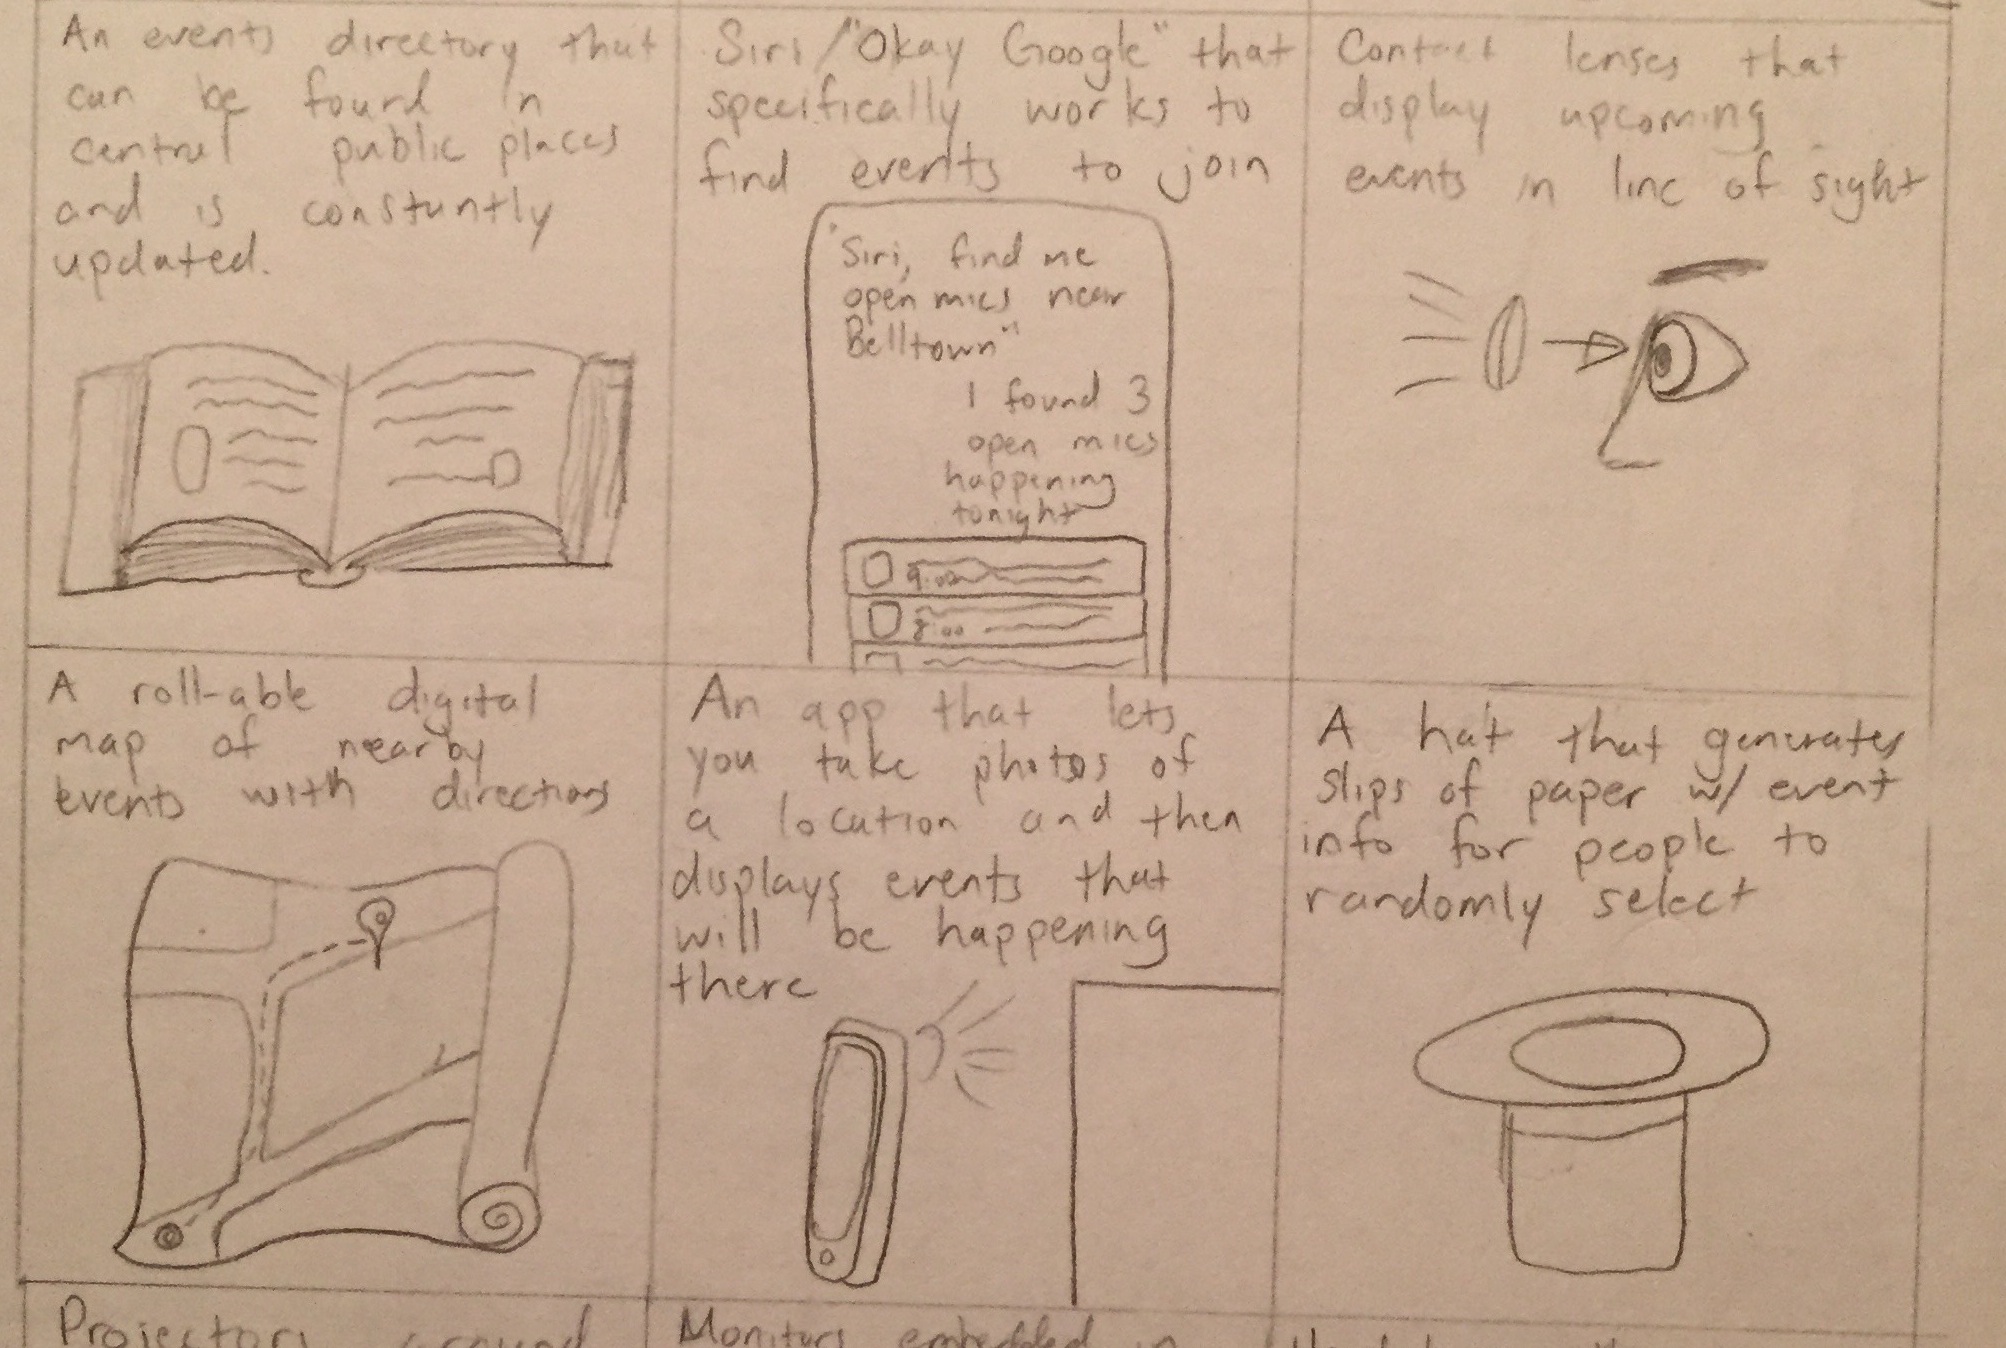 An events directory that
can be found in
central public places
and is constantly
updated.
Siri/"Okay Google" that
specifically works to
find events to join
"Siri, find me
open mics near
Belltown"
I found 3
open mics
happening
tonight
9:00
8:00
Contact lenses that
display upcoming
events in line of sight
A roll-able digital
map of nearby
events with directions
An app that lets
you take photos of
a location and then
displays events that
will be happening
there
A hat that generates
slips of paper w/ event
info for people to
randomly select
Projectors around
Monitors embedded in